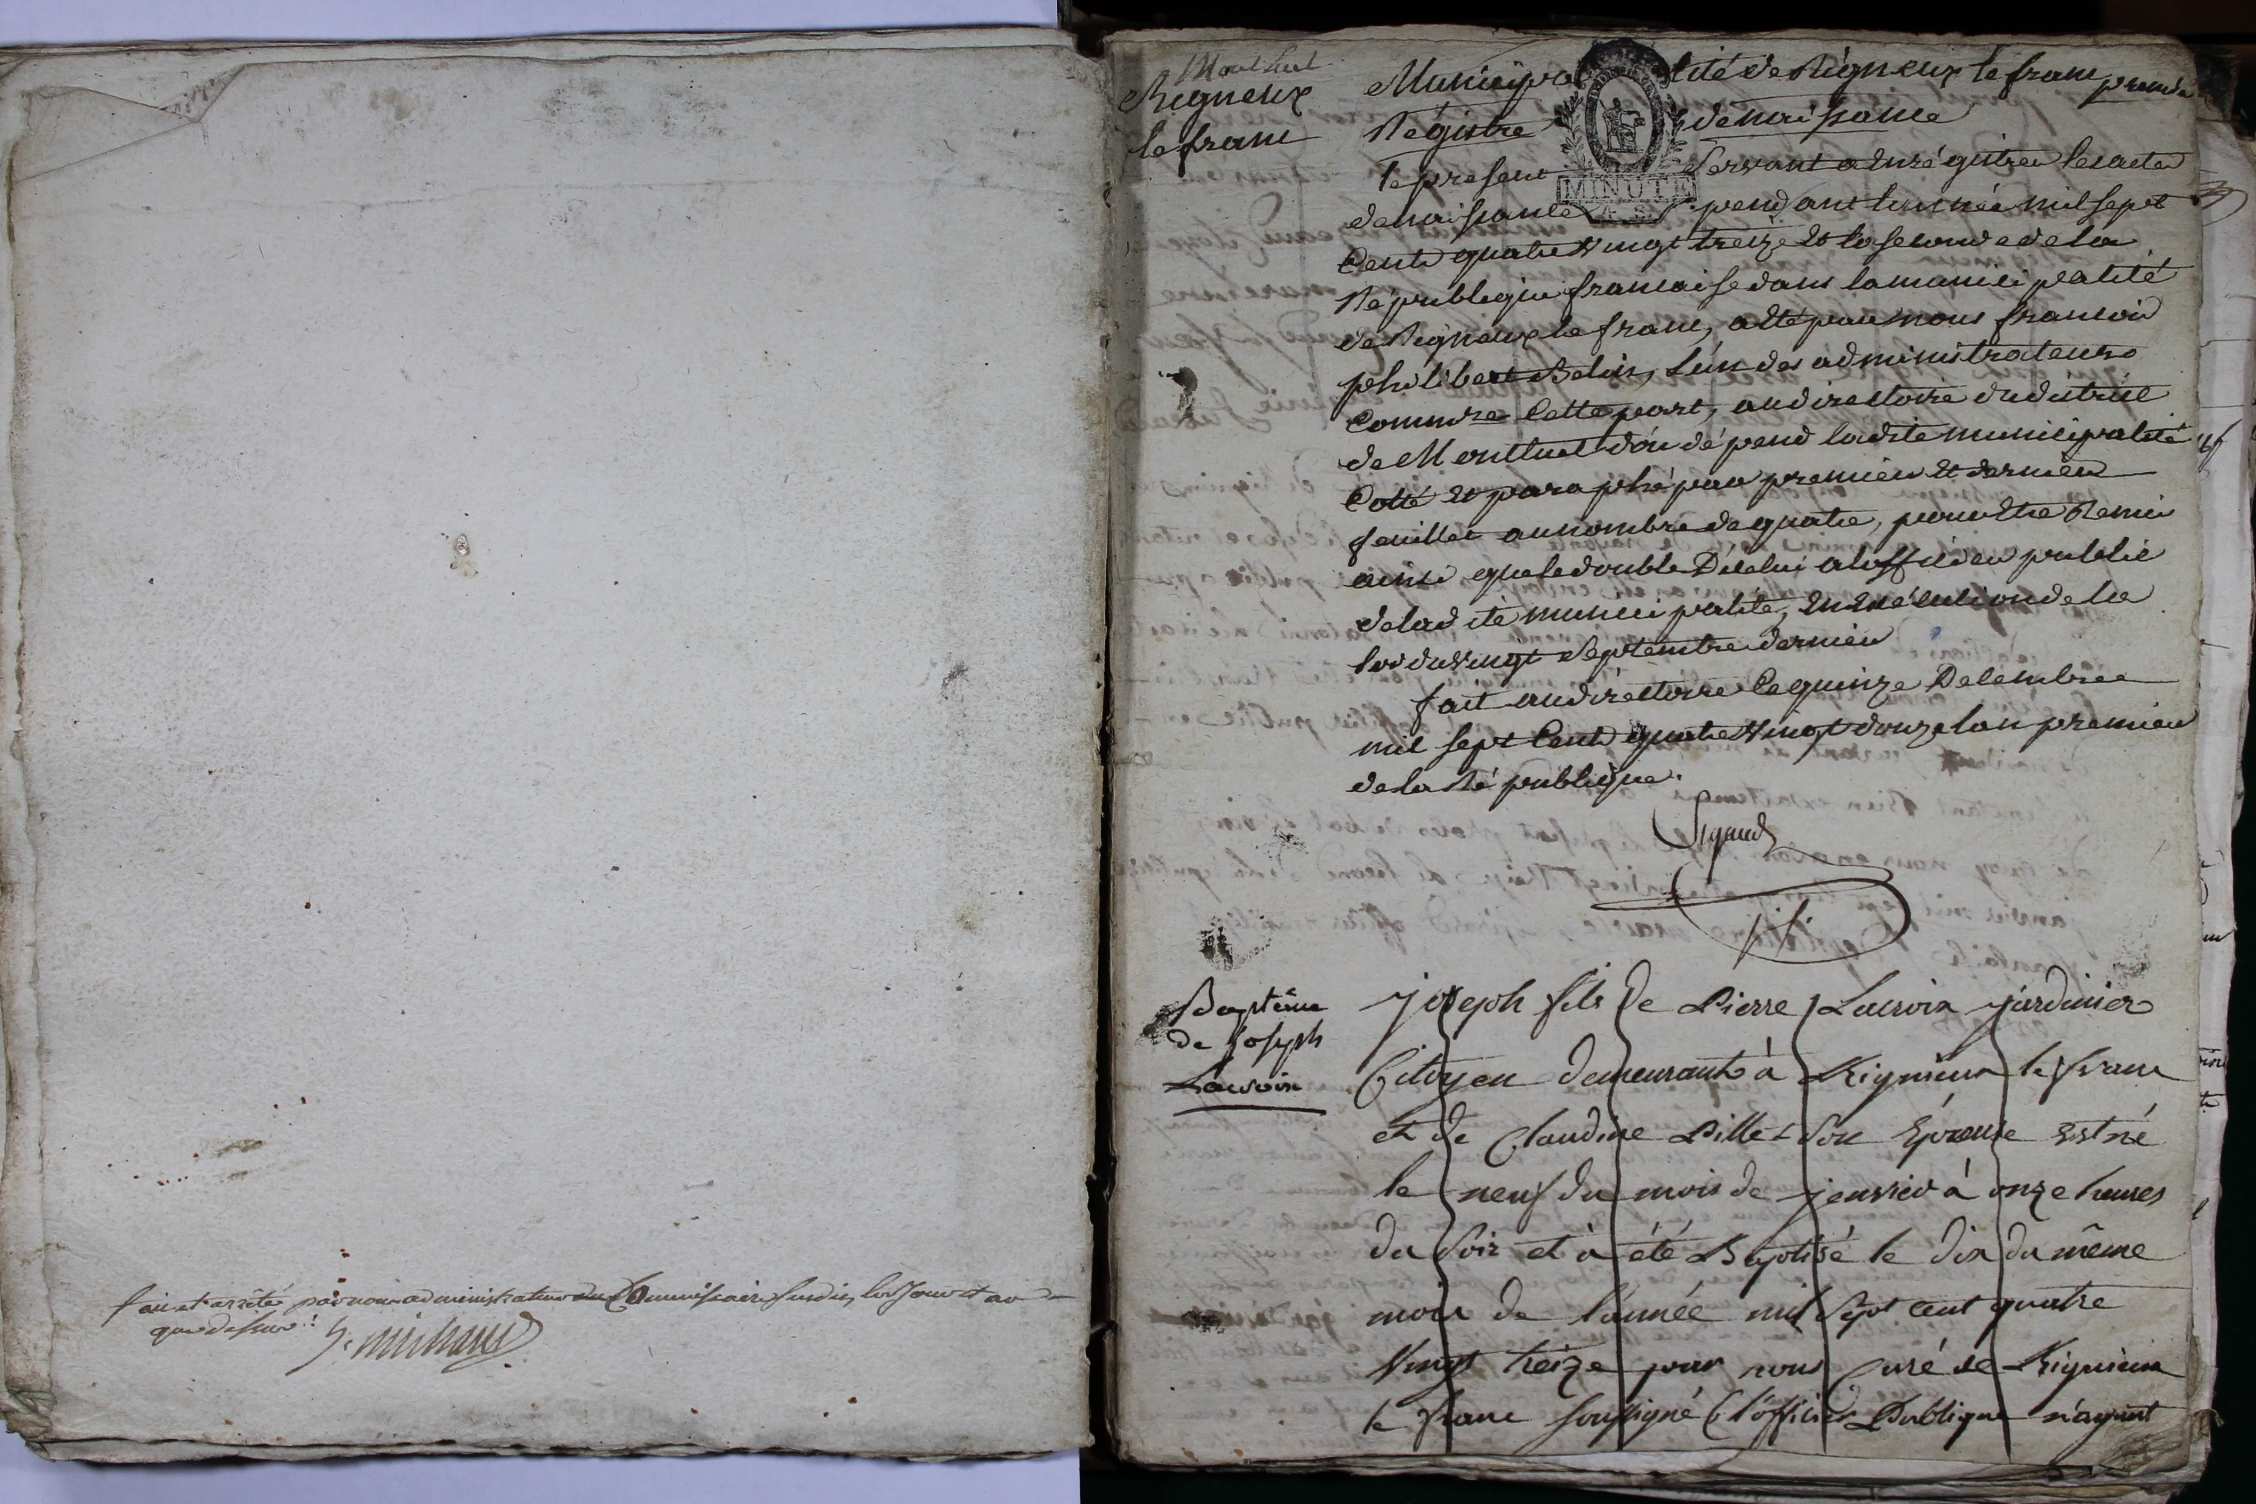 fait et arrêté par nous administrateur Commissaire susdit, les jour et an
que dessus.
Montluel
Rigneux
le franc
Municipalité de Rigneux le franc
premier
Régistre de naissance
le present servant a Enrégistrer les actes
de naissance pendant l'année mil sept
Cents quatre Vingt treize Et la seconde de la
République francaise dans la municipalité
de Rigneux le franc, a été par nous francois
philibert Belin, l'un des administrateurs
Commre Cette part, au directoire du district
de Montluel d'ou dépend ladite municipalité
Cotté Et paraphé par premier Et dernier
feuillet au nombre de quatre, pour Etre Remis
ainsi que le double D'Icelui a loffficier public
de ladite municipalité, En Exécution de la
loy du Vingt Septembre dernier
fait au directoire Ce quinze Decembre
mil sept Cents quatre Vingt douze lan premier
de la République.
MINUTE
Baptême
de Joseph
Lacroix
joseph fils de Pierre Lacroix jardinier
Citoyen demeurant à Rignieux le franc
et de Claudine Pillet son Epouse Est né
le neuf du mois de jenvier à onze heures
du Soir et à été Baptisé le dix du même
mois de l'année mil Sept cent quatre
Vingt treize par nous Curé de Rignieux
le franc soussigné l'officier Publique n'ayant